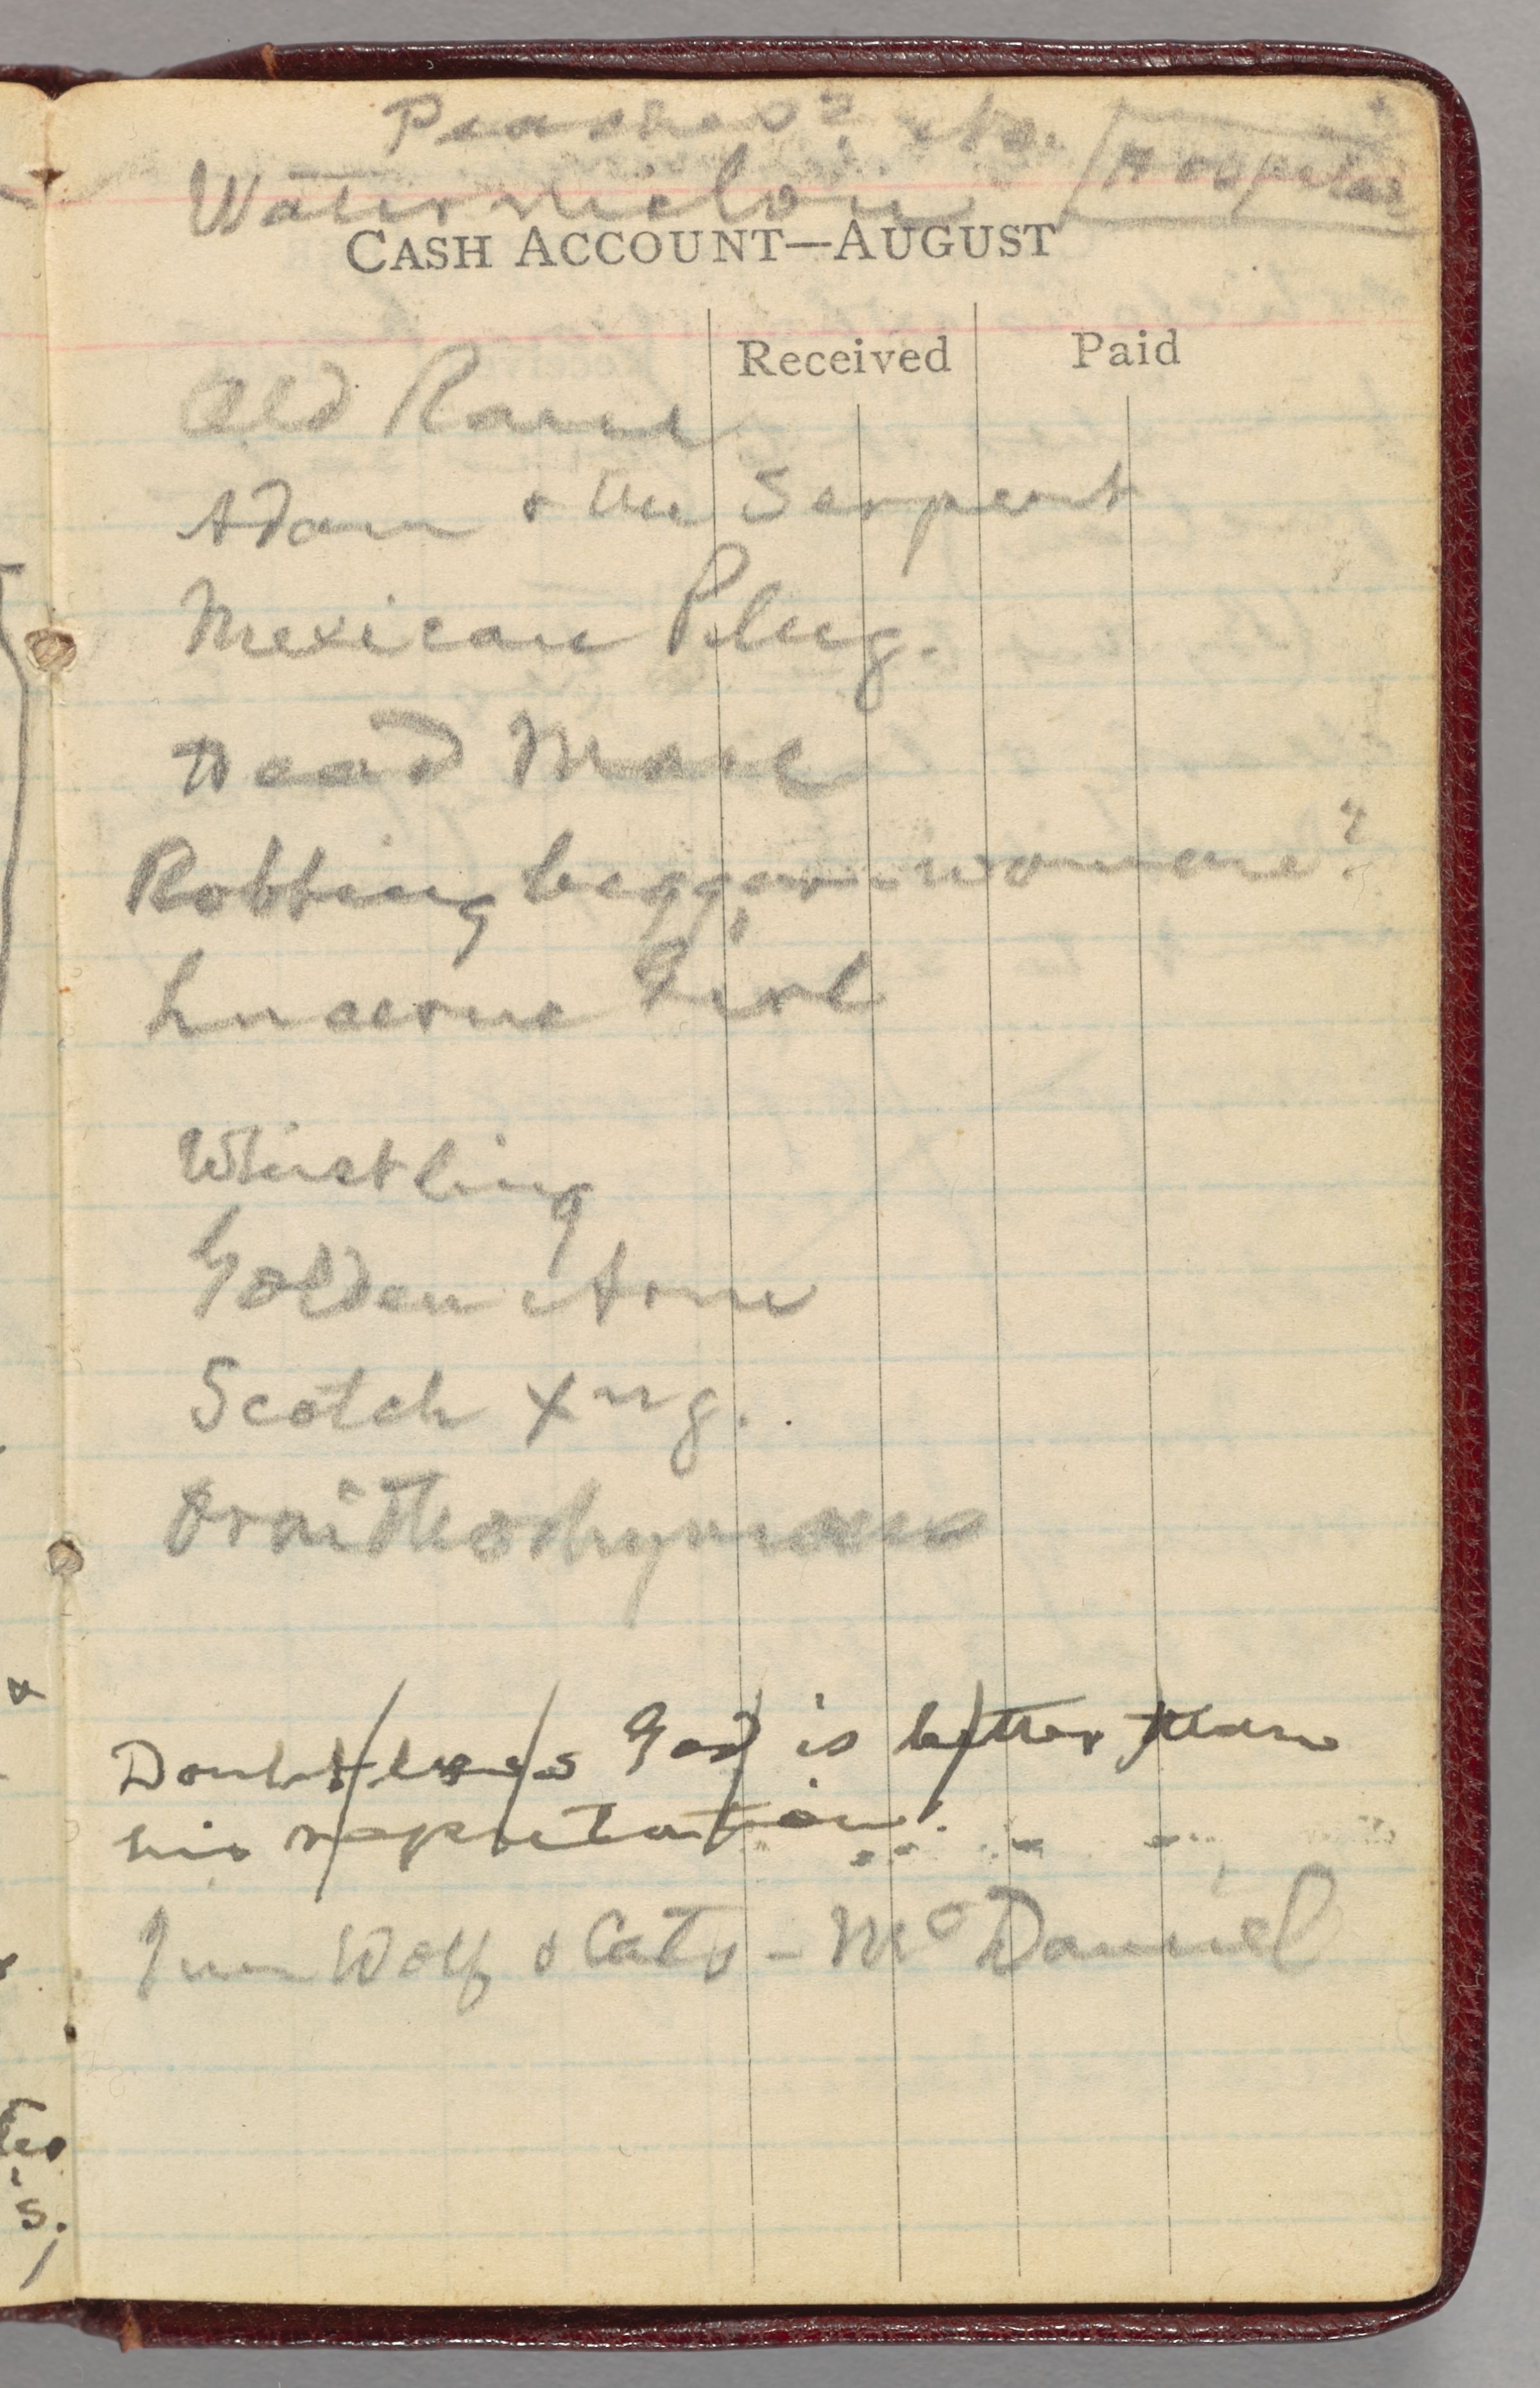 Peaches? etc. Hospital
Watermelon
CASH ACCOUNT—AUGUST
Received Paid
Old Ram
Adam & the Serpent
Mexican Plug.
Dead Man
Robbing beggar-woman?
Lucerne Girl
Whistling
Golden Arm
Scotch Xng.
Doubtless God is better than
his reputation.
Jim Wolf & Cats – McDaniel